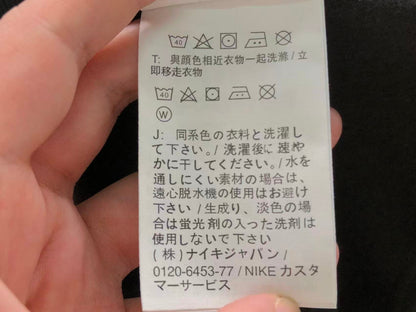 40
T: 與顏色相近衣物一起洗滌/立
即移走衣物
40
W
J: 同系色の衣料と洗濯し
て下さい。/ 洗濯後に速や
かに干してください。/ 水を
通しにくい素材の場合は、
遠心脱水機の使用はお避け
下さい / 生成り、淡色の場
合は蛍光剤の入った洗剤は
使用しないで下さい
(株) ナイキジャパン /
0120-6453-77 / NIKE カスタ
マーサービス